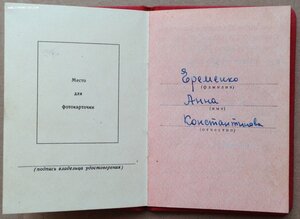 Место
для
фотокарточки
(подпись владельца удостоверения)
Еременко
(фамилия)
Анна
(имя)
Константиновна
(отчество)